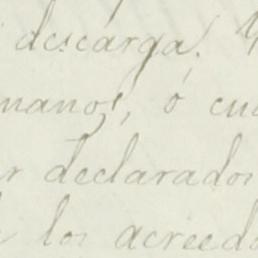 descarga.
manos, ó cua
r declarados
los acreedo